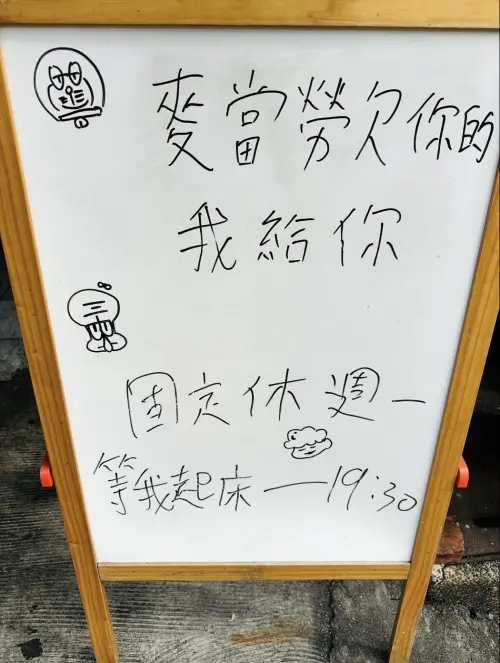 麥當勞欠你的
我給你
固定休週一
等我起床—19:30